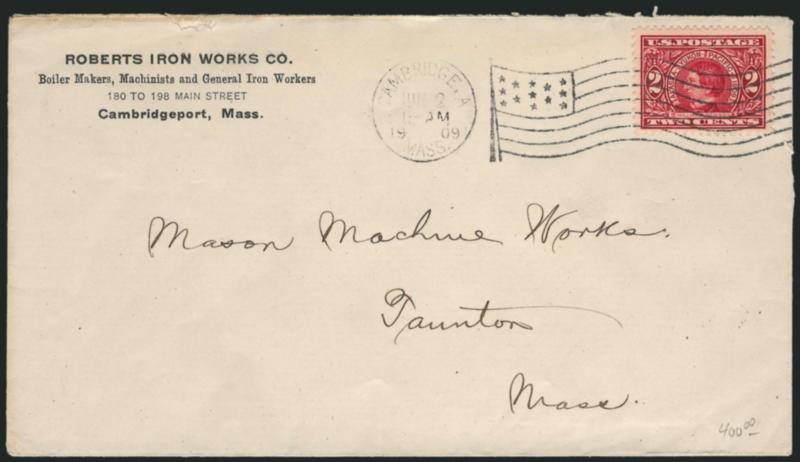 ROBERTS IRON WORKS CO.
Boiler Makers, Machinists and General Iron Workers
180 TO 198 MAIN STREET
Cambridgeport, Mass.
CAMBRIDGE, A
JUN 2
AM
19 09
MASS.
U.S. POSTAGE
ALASKA-YUKON-PACIFIC 1909
2 2
TWO CENTS
Mason Machine Works.
Taunton
Mass.
400 00